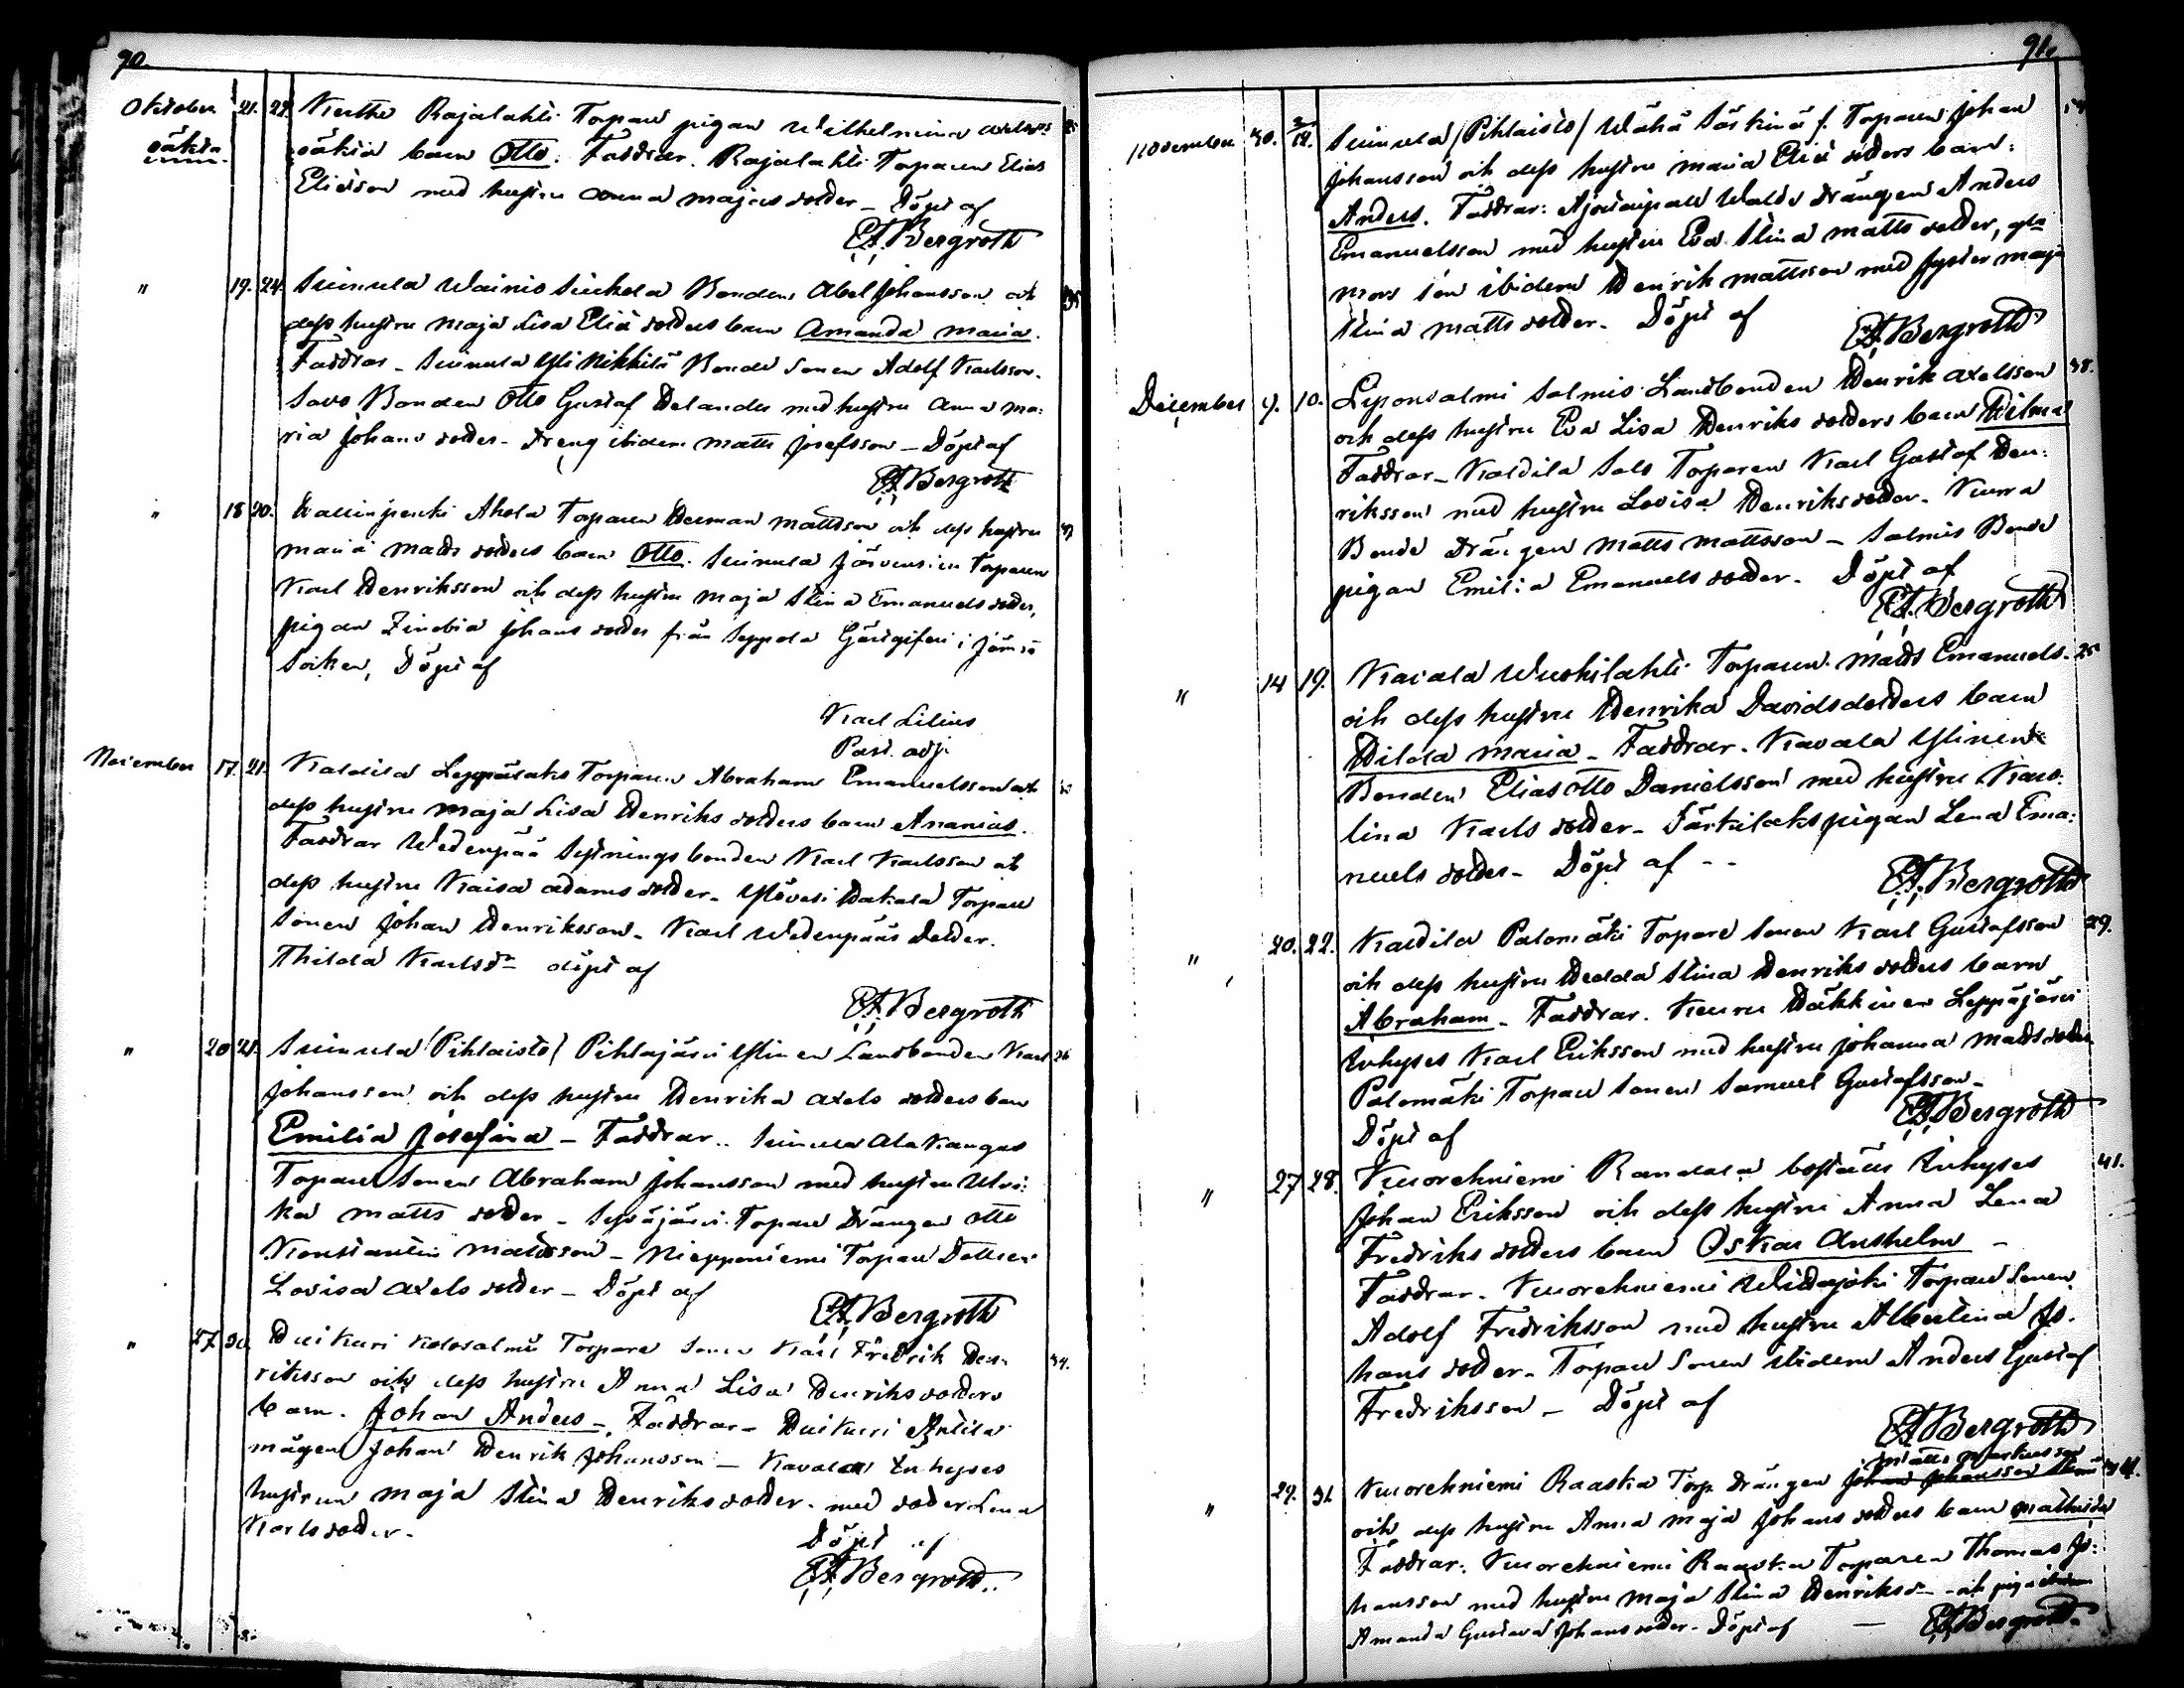 90.
Oktober 21. 29. Rajalahti Torpare pigan Wilhelmina
oäkta oäkta barn Otto. Faddrar. Rajalahti Torparen Elias
Eliasson med hustru Anna Majas dotter – Döpt af
EABergroth
" 19. 24. Suinula Wainio Bonden Abel Johansson och
dess hustru Maja Lisa Eliä dotters barn Amanda Maria.
Faddrar – Suinula Yli Nikkilä Bonde sonen Adolf Karlsson.
Savo Bonden Otto Gustaf Helander med hustru Anna Ma:
ria Johans dotter – Dreng ibidem Matts Josefsson – Döpt af
EABergroth
" 18 20. Ahola Torparen Herman Mattsson och dess hustru
Maria Matts dotters barn Otto. Suinula Järvensivu Torparen
Karl Henriksson och dess hustru Maja Stina Emanuels dotter,
pigan Zinobia Johans dotter från Seppola Gästgifveri i Jämsä
Socken, Döpt af
Karl Lilius
Past. adj.
November 17. 21. Kaldila Leppälaks Torparen Abraham Emanuelsson och
dess hustru Maja Lisa Henriks dotters barn Ananias.
Faddrar Wedenpää Sytnings bonden Karl Karlsson och
dess hustru Kaisa Adams dotter – Ylövesi Hakala Torpare
sonen Johan Henriksson – Karl Wedenpääs Dotter.
Thilda Karlsdr döpt af
EABergroth
" 20 21. Suinula (Pihlaisto) Pihlajärvi Ylinen Landbonden Karl 26
Johansson och dess hustru Henrika Axels dotters barn
Emilia Josefina – Faddrar.. Suinula Ala Kangas
Torpare Sonen Abraham Johansson med hustru Ulri:
ka Matts dotter – Syväjärvi Torpare Drängen Otto
Konstantin Mattsson – Niepponiemi Torpare Dottren
Lovisa Axels dotter – Döpt af
EABergroth
" 27. 30. Huikuri Kolosalmi Torpare Sonen Karl Fredrik Hen: 34.
riksson och dess hustru Anna Lisa Henriks dotters
barn. Johan Anders – Faddrar – Huikuri Anttila
mågen Johan Henrik Johansson – Kavala Inhyses
hustrun Maja Stina Henriks dotter – med dotter Lena
Karls dotter.
Döpt af
EABergroth.
91.
November 30. Suinula (Pihlaisto) Wähä Särkinä f. Torparen Johan
Johansson och dess hustru Maria Eliä dotters barn:
Anders. Faddrar: Walde drängen Anders
Emanuelsson med hustru Eva Stina Matts dotter,
mors son ibidem Henrik Mattsson med syster Maja
Stina Matts dotter. Döpt af
EABergroth
December 9. 10. Leponsalmi Salmis Landbonden Henrik Axelsson 38.
och dess hustru Eva Lisa Henriks dotters barn Hilma
Faddrar – Kaldila Salo Torparen Karl Gustaf Hen:
riksson med hustru Lovisa Henriks dotter. Kurra
Bonde drängen Matts Mattsson – Salmis Bonde
pigan Emilia Emanuels dotter – Döpt af
EABergroth
" 14 19. Kavala Wuohilahti Torparen Matts Emanuels. 25
och dess hustru Henrika Davids dotters barn
Hilda Maria – Faddrar. Kavala Ylinen
Bonden Elias Otto Danielsson med hustru Karo:
lina Karls dotter – Särkilaks pigan Lena Ema:
nuels dotter – Döpt af – –
EABergroth
" 20. 22. Kaldila Palomäki Torpare Sonen Karl Gustafsson 29.
och dess hustru Hedda Stina Henriks dotters barn
Abraham – Faddrar. Kuuru Häkkinen Leppäjärvi
Inhyses Karl Eriksson med hustru Johanna Matts dotter
Palomäki Torpare Sonen Samuel Gustafsson –
Döpt af
EABergroth
" 27 28. Kuorehniemi Randala Johan Eriksson och dess hustru Anna Lena 41.
Fredriks dotters barn Oskar Anshelm –
Faddrar – Kuorehniemi Widajoki Torpare Sonen
Adolf Fredriksson med hustru Albertina Jo.
hans dotter – Torpare Sonen ibidem Anders Gustaf
Fredriksson – Döpt af
EABergroth
Matts Markusson
" 29. 31. Kuorehniemi Raaska Torp. Drängen Johan Johansson
och dess hustru Anna Maja Johans dotters barn Mathilda
Faddrar: Kuorehniemi Raaska Torparen Thomas Jo:
hansson med hustru Maja Stina Henriksdr – och pigan
Amanda Gustava Johans dotter – Döpt af – EABergroth